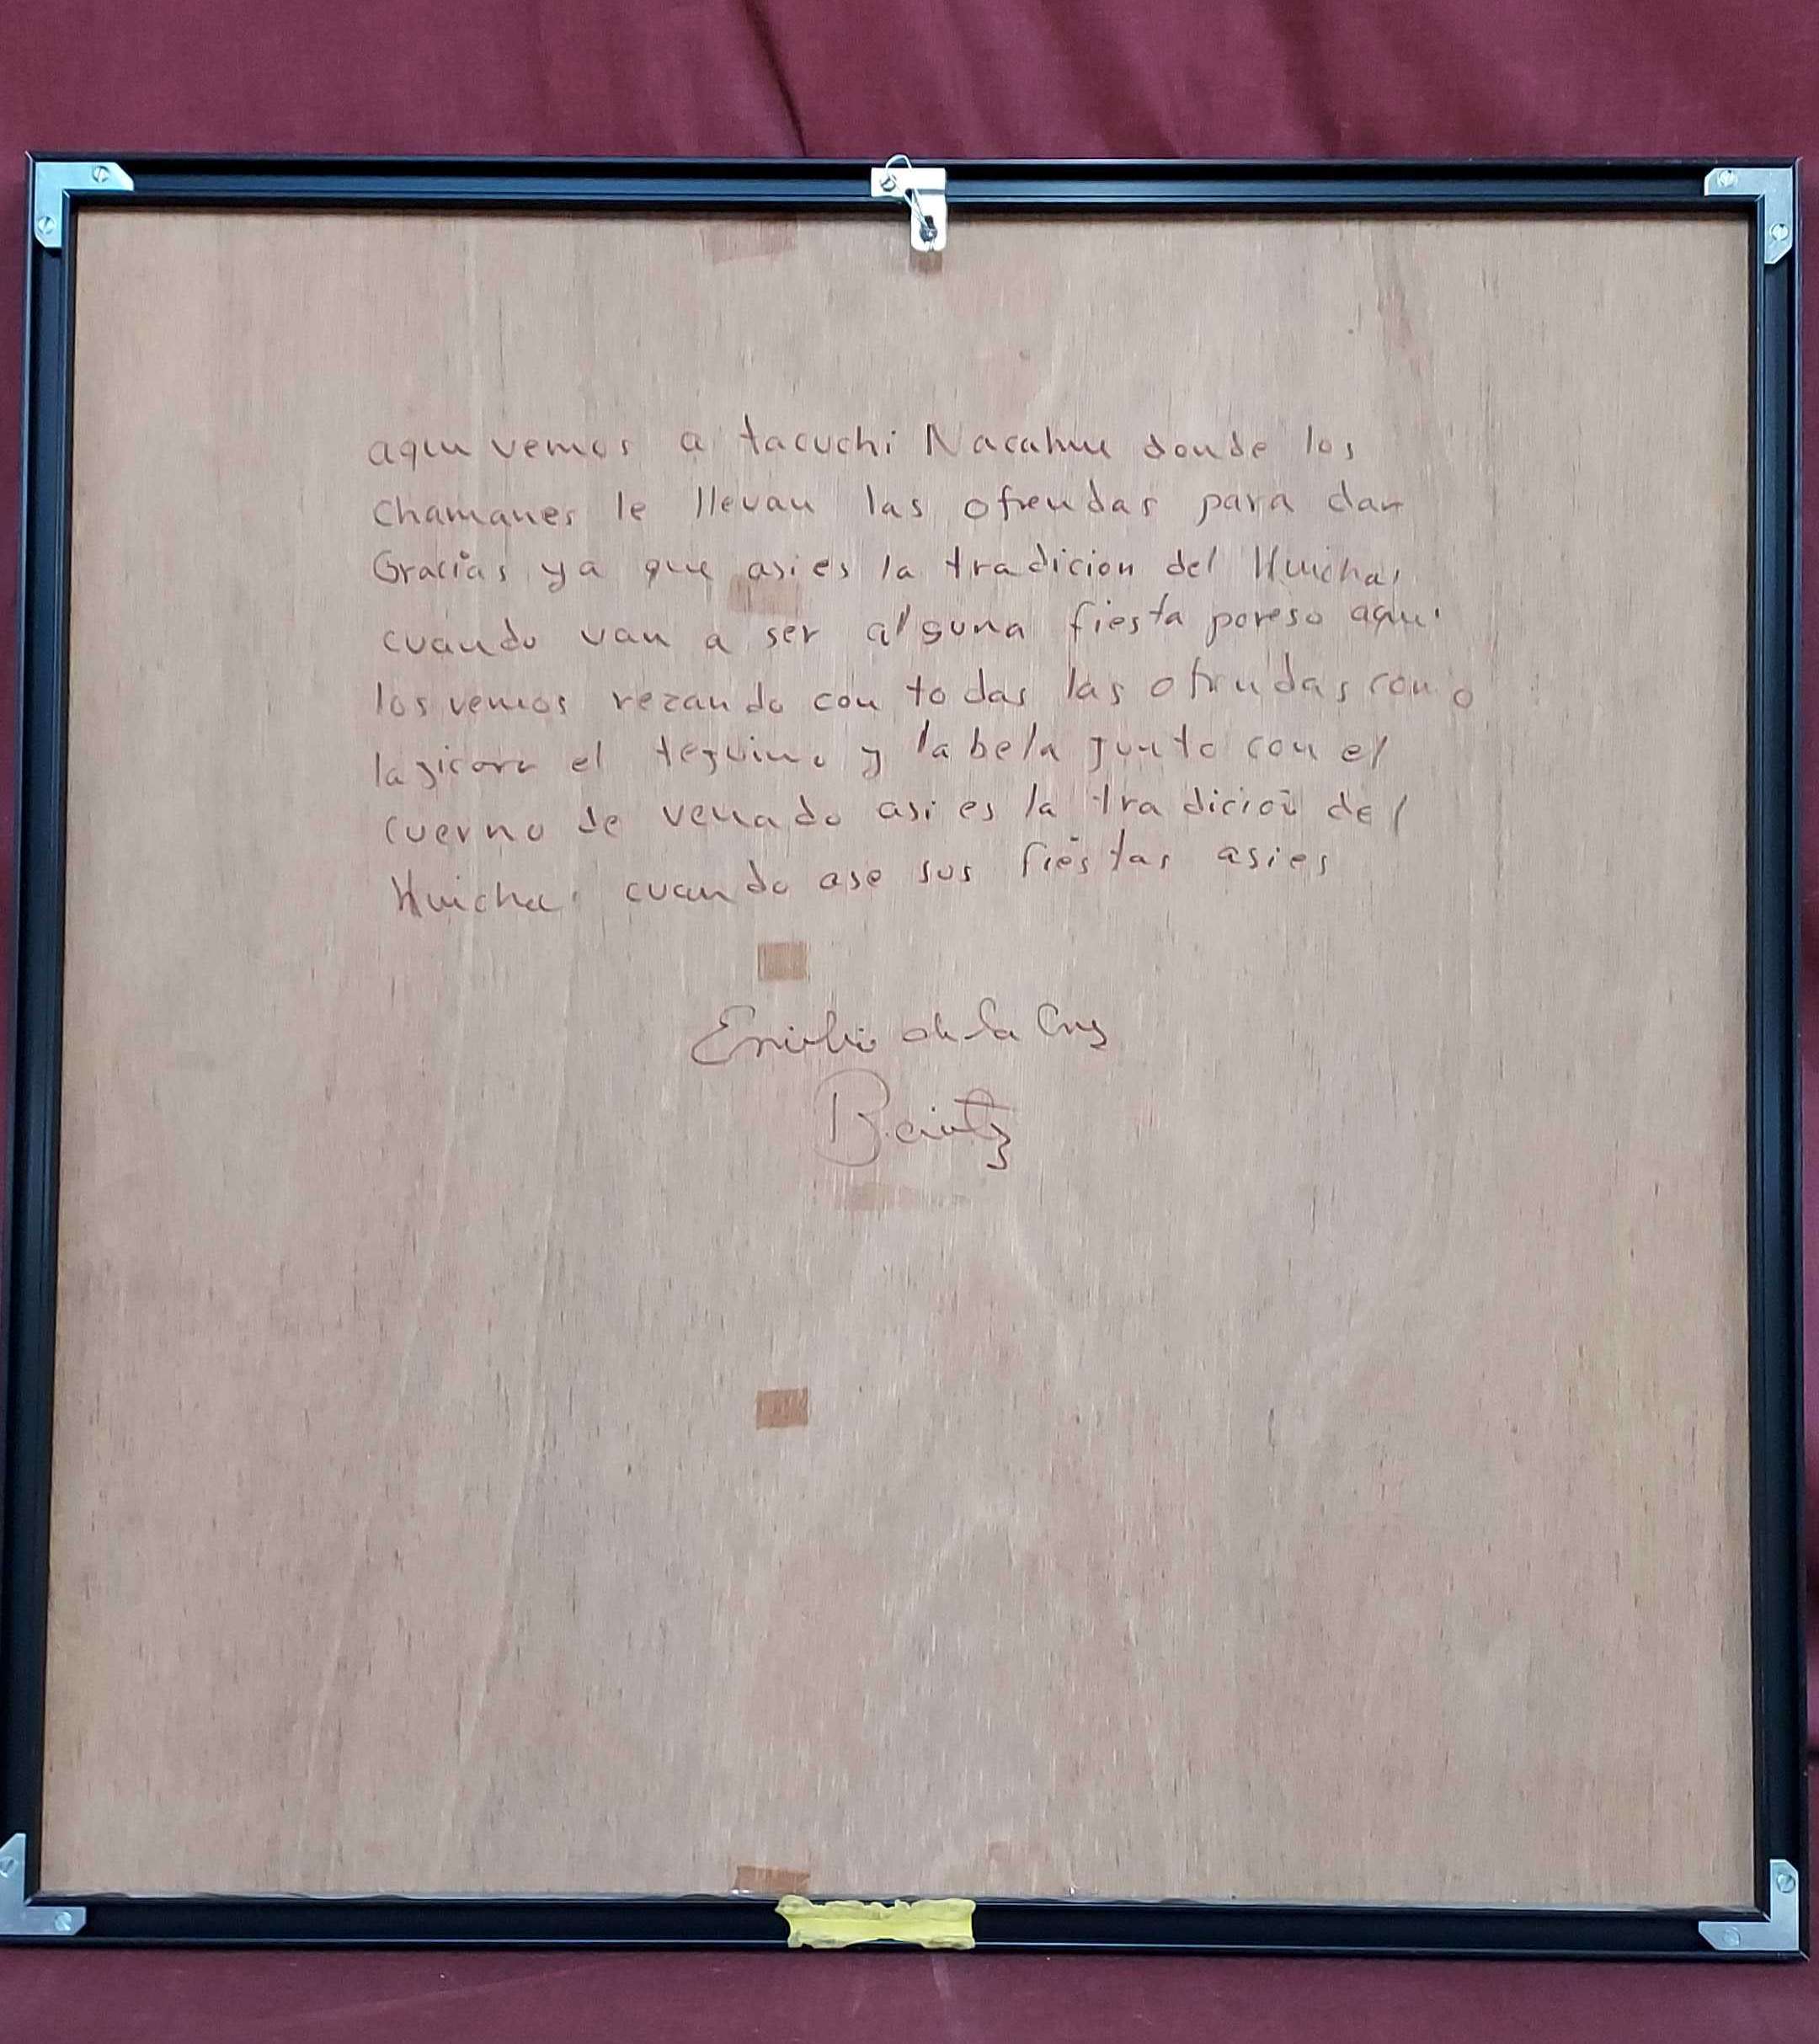 aqui vemos a tacuchi Nacahue donde los
chamanes le llevan las ofrendas para dar
Gracias ya que asi es la tradicion del Huichol
cuando van a ser alguna fiesta poreso aqui
los vemos rezando con todas las ofrendas como
la jicara el teguino y la bela junto con el
cuerno de venado asi es la tradicion del
Huichol cuando ase sus fiestas asi es
Emilio de la Cruz
Benitez